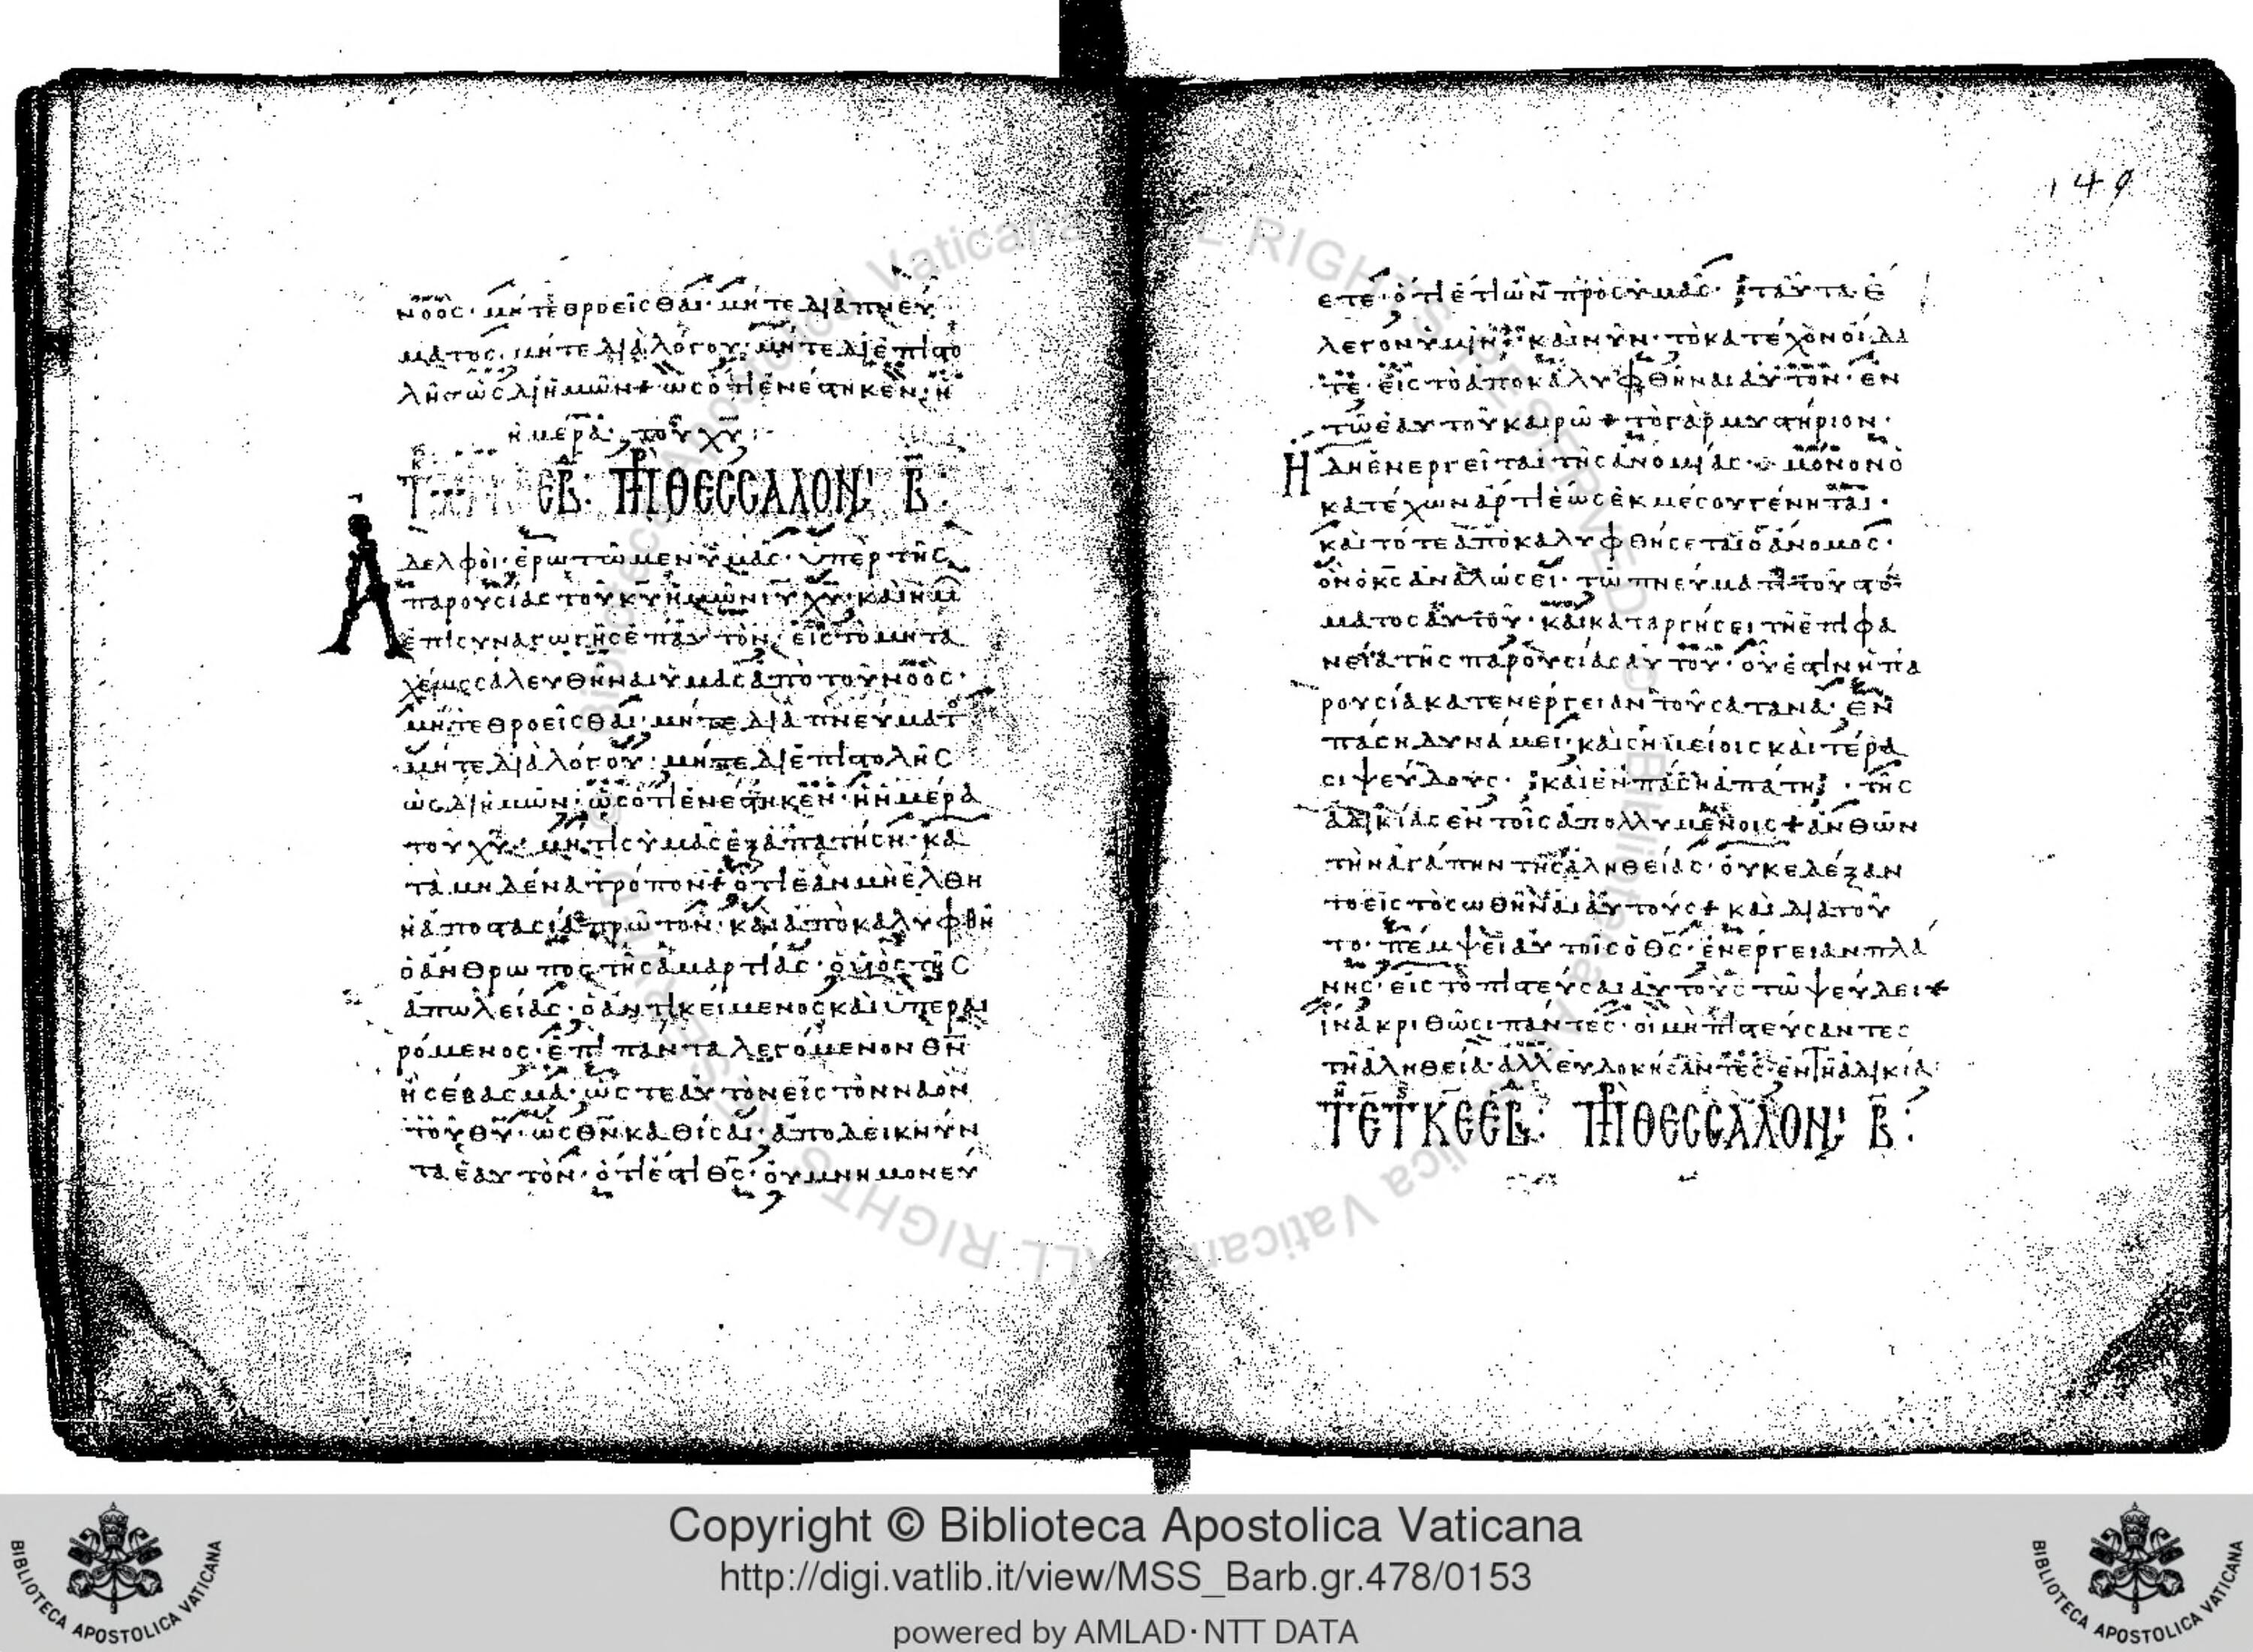 νοὸς· μήτε θροεῖσθαι· μήτε διὰ πνεύ
ματος· μήτε διὰ λόγου· μήτε δι' ἐπιστο
λῆς ὡς δι' ἡμῶν + ὡς ὅτι ἐνέστηκεν· ἡ
ἡμέρα· τοῦ χυ:
εβ: πρ θεσσαλον; β:
Ἀδελφοὶ· ἐρωτῶμεν ὑμᾶς· ὑπὲρ τῆς
παρουσίας τοῦ κυ ἡμῶν ιυ χυ· καὶ ἡμ
ἐπισυναγωγῆς ἐπ' αυτὸν· εἰς τὸ μὴ τα
χέως σαλευθῆναι ὑμᾶς ἀπὸ τοῦ νοὸς·
μήτε θροεῖσθαι· μήτε διὰ πνεύματ
μήτε διὰ λόγου· μήτε δι' ἐπιστολῆς
ὡς δι' ἡμῶν· ὡς ὅτι ἐνέστηκεν· ἡ ἡμέρα
τοῦ χυ· μή τις ὑμᾶς ἐξαπατήση· κα
τὰ μηδένα τρόπον + ὅτι ἐὰν μὴ ἔλθη
ἡ ἀποστασία πρῶτον· καὶ ἀποκαλυφθῆ
ὁ ἄνθρωπος τῆς ἁμαρτίας· ὁ υἱὸς τῆς
ἀπωλείας· ὁ ἀντικείμενος καὶ ὑπεραι
ρόμενος· ἐπὶ πάντα λεγόμενον θν
ἢ σέβασμα· ὥστε αὐτὸν εἰς τὸν ναὸν
τοῦ θυ· ὡς θν καθίσαι· ἀποδεικνύν
τα ἑαυτὸν· ὅτι ἐστὶ θς· οὐ μνημονεύ
149
ετε· ὅτι ἔτι ὢν πρὸς ὑμᾶς· ταῦτα ἔ
λεγον ὑμῖν + καὶ νῦν· τὸ κατέχον οἴδα
τε· εἰς τὸ ἀποκαλυφθῆναι αὐτὸν· ἐν
τῶ ἑαυτοῦ καιρῶ + τὸ γὰρ μυστήριον·
Ἤδη ἐνεργεῖται τῆς ἀνομίας· μόνον ὁ
κατέχων ἄρτι ἕως ἐκ μέσου γένηται·
καὶ τότε ἀποκαλυφθήσεται ὁ ἄνομος·
ὃν ὁ κς ἀναλώσει· τῶ πνεύματι τοῦ στό
ματος αὐτοῦ· καὶ καταργήσει τῆ ἐπιφα
νεία τῆς παρουσίας αὐτοῦ· οὗ ἐστὶν ἡ πα
ρουσία κατ' ἐνέργειαν τοῦ σατανᾶ· ἐν
πάση δυνάμει· καὶ σημείοις καὶ τέρα
σι ψεύδους· καὶ ἐν πάση ἀπάτη· τῆς
ἀδικίας ἐν τοῖς ἀπολλυμένοις + ἀνθ' ὧν
τὴν ἀγάπην τῆς ἀληθείας· οὐκ ἐδέξαν
το εἰς τὸ σωθῆναι αὐτούς + καὶ διὰ τοῦ
το· πέμψει αὐτοῖς ὁ θς· ἐνέργειαν πλά
νης· εἰς τὸ πιστεῦσαι αὐτοὺς τῶ ψεύδει +
ἵνα κριθῶσι πάντες· οἱ μὴ πιστεύσαντες
τῆ ἀληθεία· ἀλλ' εὐδοκήσαντες· ἐν τῆ ἀδικία·
Τῆ ετ κε εβ: πρ θεσσαλον; β:
Copyright © Biblioteca Apostolica Vaticana
http://digi.vatlib.it/view/MSS_Barb.gr.478/0153
powered by AMLAD·NTT DATA
BIBLIOTECA APOSTOLICA VATICANA
BIBLIOTECA APOSTOLICA VATICANA